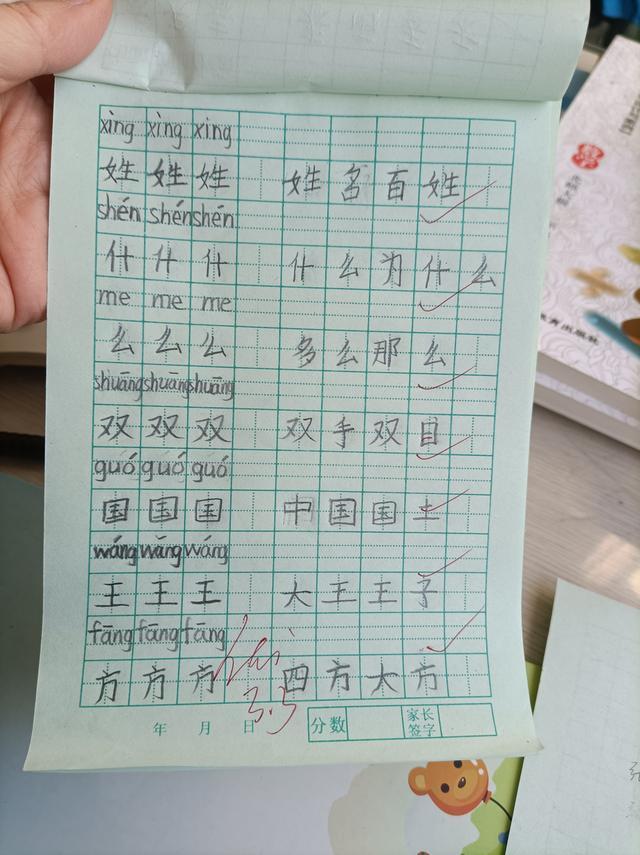 xìng xìng xìng
姓 姓 姓 姓 名 百 姓
shén shén shén
什 什 什 什 么 为 什 么
me me me
么 么 么 多 么 那 么
shuāng shuāng shuāng
双 双 双 双 手 双 目
guó guó guó
国 国 国 中 国 国 土
wáng wáng wáng
王 王 王 大 王 王 子
fāng fāng fāng
方 方 方 四 方 大 方
3.3
年 月 日 分数 家长签字